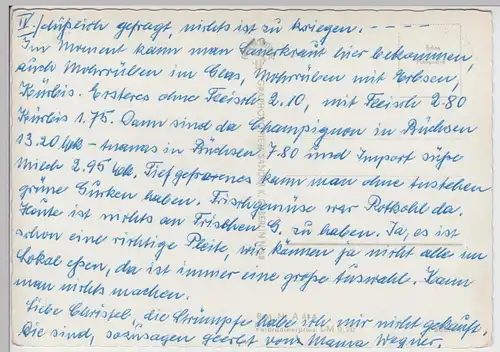 IV.) schlußeich gefragt, nichts ist zu kriegen. - - - -
Im Moment kann man Sauerkraut hier bekommen,
auch Mohrrüben im Glas, Mohrrüben mit Erbsen,
Kürbis. Ersteres ohne Fleisch 2.10, mit Fleisch 2.80
Kürbis 1.75. Dann sind da Champignon in Büchsen
13.20 Mk - Ananas in Büchsen 7.80 und Import süße
Milch 2.95 Mk. Tiefgefrorenes kann man ohne anstehen
grüne Gurken haben. Frischgemüse war Rotkohl da.
Heute ist nichts an Frischem G. zu haben. Ja, es ist
schon eine richtige Pleite, wir können ja nicht alle im
Lokal essen, da ist immer eine große Auswahl. Kann
man nichts machen.
Liebe Christel, die Strümpfe habe ich mir nicht gekauft.
Die sind, sozusagen geerbt von Mama Wagner.